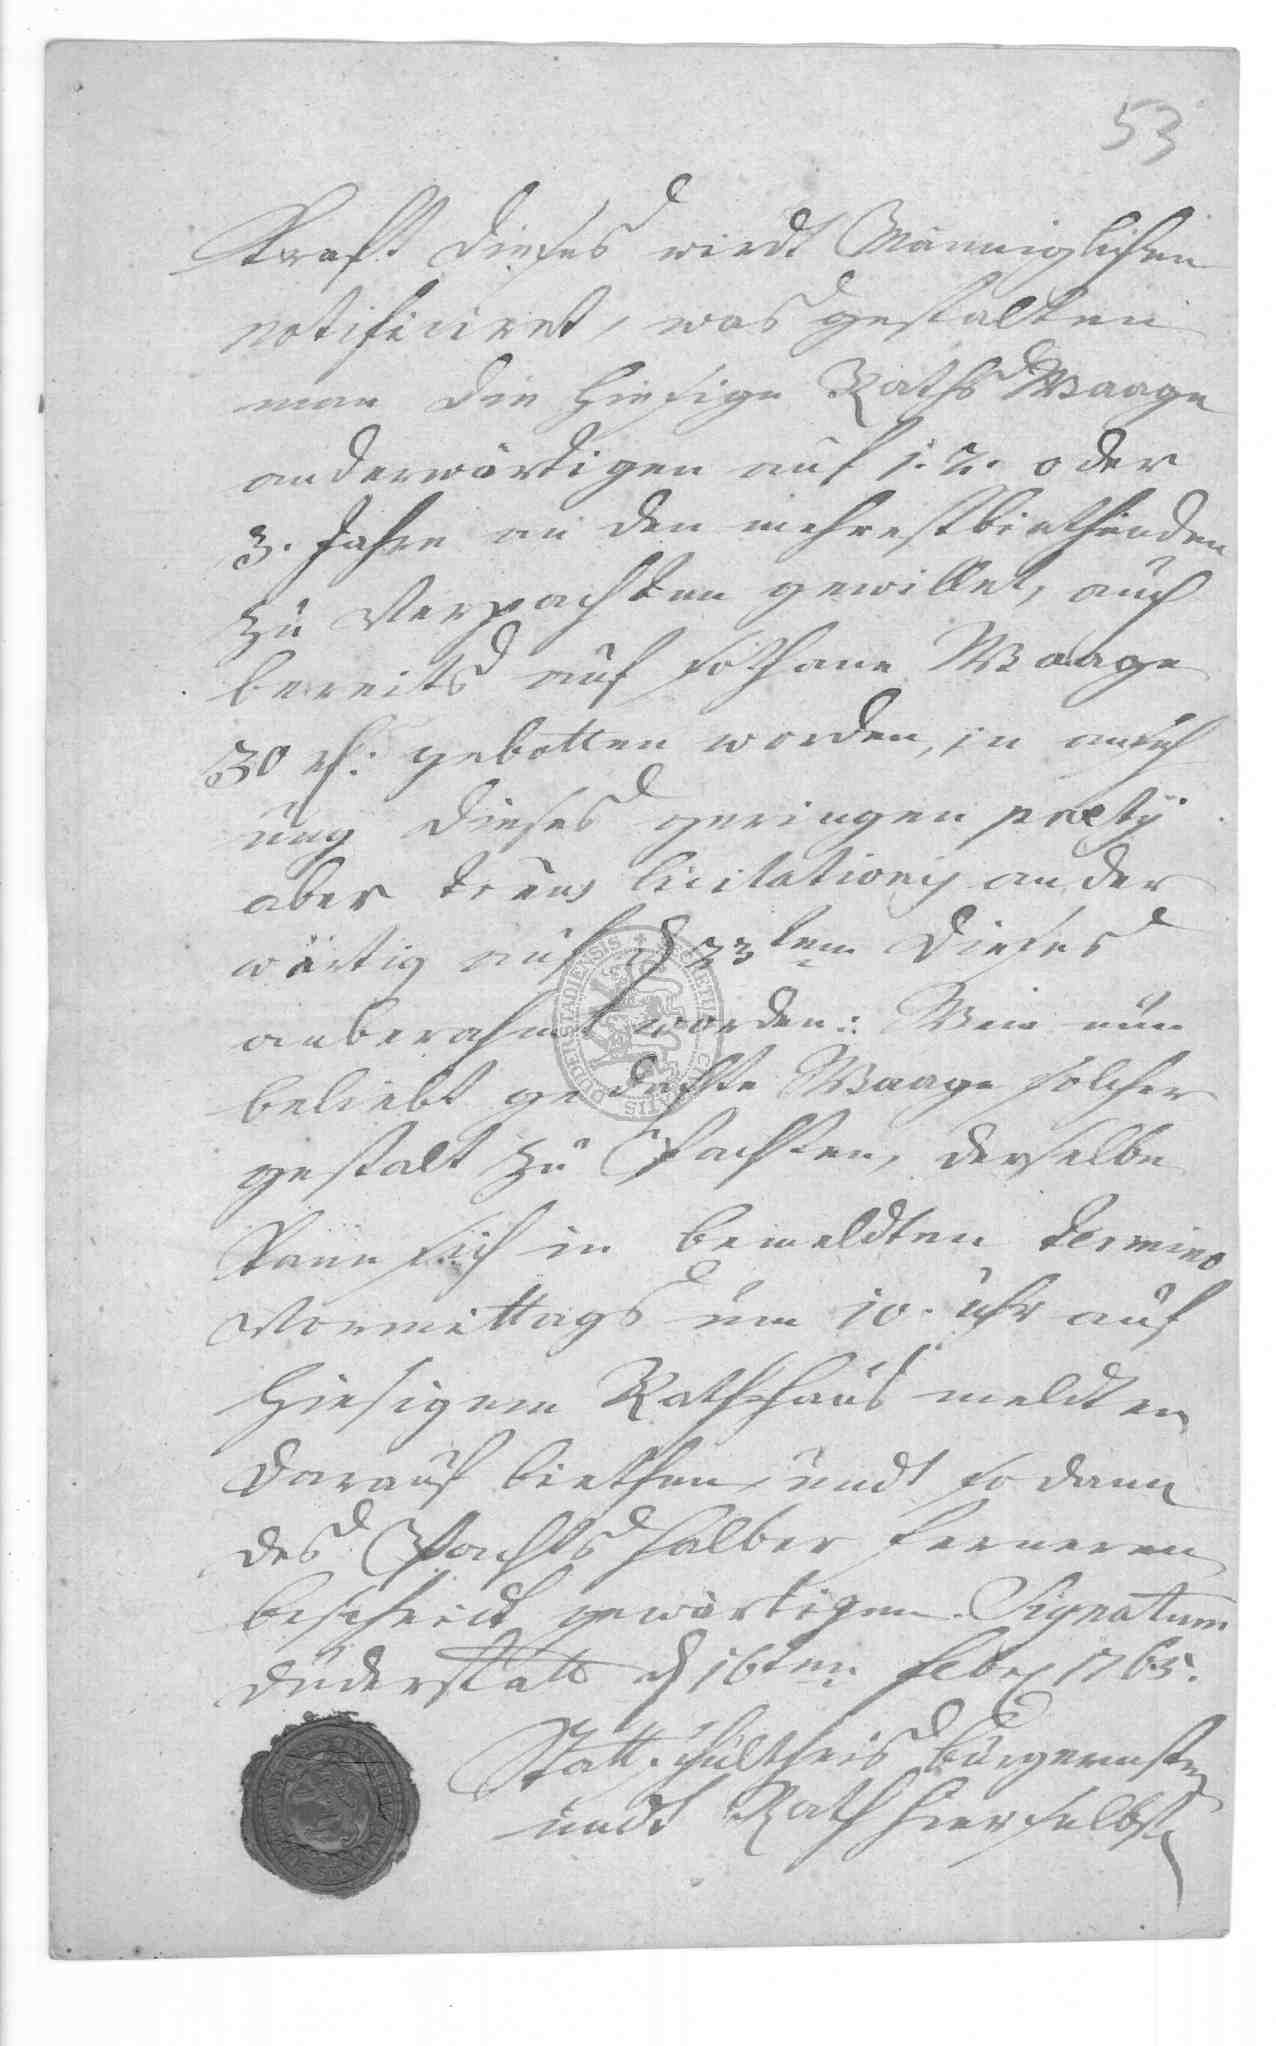 53
Kraft dieses wirdt Männiglichen
notificiret, was gestalten
man die hiesige Raths Waage
anderwärtigen auf 1. 2. oder
3. Jahre an den mehrestbiethenden
zu Verpachten gewillet, auch
bereits auf sothane Waage
30 rh: gebotten worden, in anseh
ung dieses geringen pretij
aber licitationis ander
wärtig auf d 23ten dieses
anberahmt worden: Wem nun
beliebt gedachte Waage solcher
gestalt zu Pachten, derselbe
Kann sich in bemeldten termino
Vormittags um 10. uhr auf
hiesigem Rathhaus melden
darauf biethen, undt so dann
des Pachts halber ferneren
bescheidt gewärtigen. Signatum
Duderstatt d 16ten Febr 1765.
Statt schultheis Bürgermster
undt Rath hierselbst
DUDERSTADIENSIS